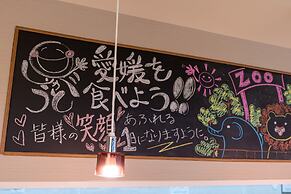 愛媛を
食べよう!!
ZOO
皆様の笑顔あふれる
1日になりますように。